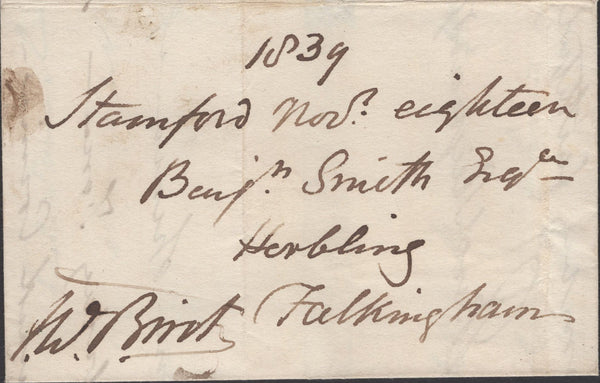 1839
Stamford Novr. eighteen
Benjn. Smith Esqre
Horbling
Falkingham